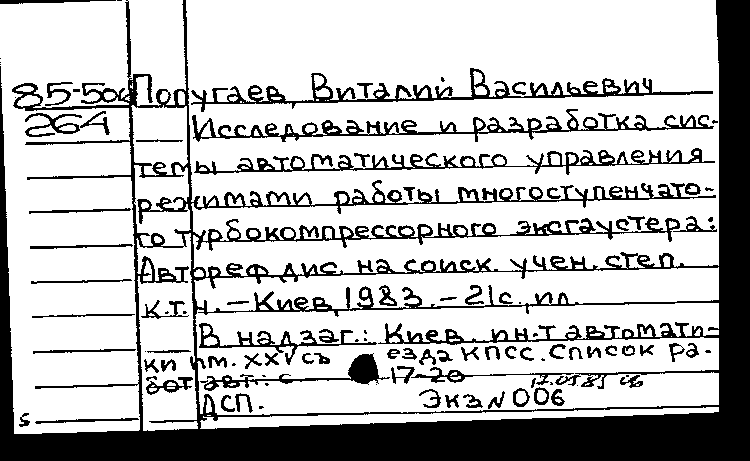 85-50
Попугаев, Виталий Васильевич
264
Исследование и разработка сис-
темы автоматического управления
режимами работы многоступенчато-
го турбокомпрессорного эксгаустера:
Автореф дис. на соиск. учен. степ.
к.т.н. – Киев, 1983. – 21с., ил.
В надзаг.: Киев. ин-т автомати-
ки им. XXV съезда КПСС. Список ра-
бот авт.: с 17-20
ДСП. Экз N 006
s